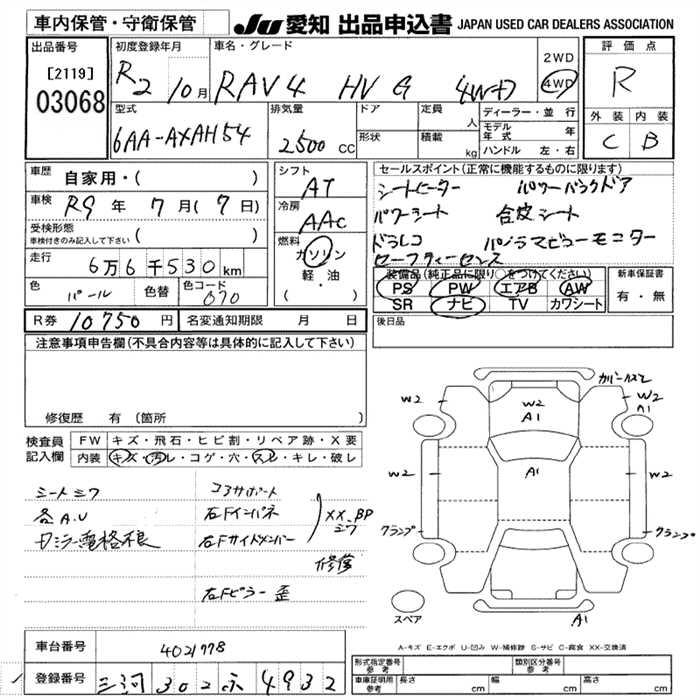 車内保管・守衛保管
JU 愛知 出品申込書 JAPAN USED CAR DEALERS ASSOCIATION
出品番号
[2119]
03068
初度登録年月
R2 10月
車名・グレード
RAV4 HV G 4WD
2WD
4WD
評価点
R
型式
6AA-AXAH54
排気量
2500 CC
ドア
形状
定員
人
積載
kg
ディーラー・並行
モデル年式 年
ハンドル 左・右
外装 内装
C B
車歴
自家用・( )
車検 R9年 7月(7日)
受検形態
車検付きのみ記入して下さい ( )
走行
6万6千530km
色 パール 色替 色コード 070
シフト
AT
冷房
AAC
燃料
ガソリン
軽・油
( )
セールスポイント(正常に機能するものに限ります)
シートヒーター パワーバックドア
パワーシート 合皮シート
ドラレコ パノラマビューモニター
セーフティーセンス
装備品(純正品に限り○をつけてください)
PS PW エアB AW
SR ナビ TV カワシート
新車保証書
有・無
R券 10750円 名変通知期限 月 日
後日品
注意事項申告欄(不具合内容等は具体的に記入して下さい)
修復歴 有 (箇所 )
検査員記入欄
FW キズ・飛石・ヒビ割・リペア跡・X要
内装 キズ・汚レ・コゲ・穴・スレ・キレ・破レ
シートシワ コアサポート
各A.U 右Fインパネ XX、BP
右Fサイドメンバー シワ
修復
右Fピラー 歪
W2 W2 A1 W2 A1
A1
W2 W2
クランプ クランプ
スペア A1
A-キズ E-エクボ U-凹み W-補修跡 S-サビ C-腐食 XX-交換済
車台番号 4021778
登録番号 三河 302 ふ 4932
形式指定番号 参考
類別区分番号 参考
車庫証明用 参考 長さ cm 幅 cm 高さ cm